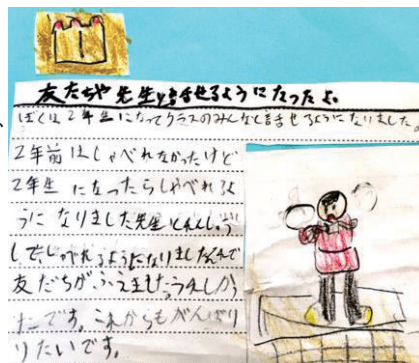 友だちや先生と話せるようになったよ。
ぼくは2年生になってクラスのみんなと話せるようになりました。
2年前はしゃべれなかったけど
2年生になったらしゃべれるよ
うになりました先生とれんしゅう
してしゃべれるようになりましたなんで
友だちがふえました。うれしか
たです。これからもがんばり
りたいです。